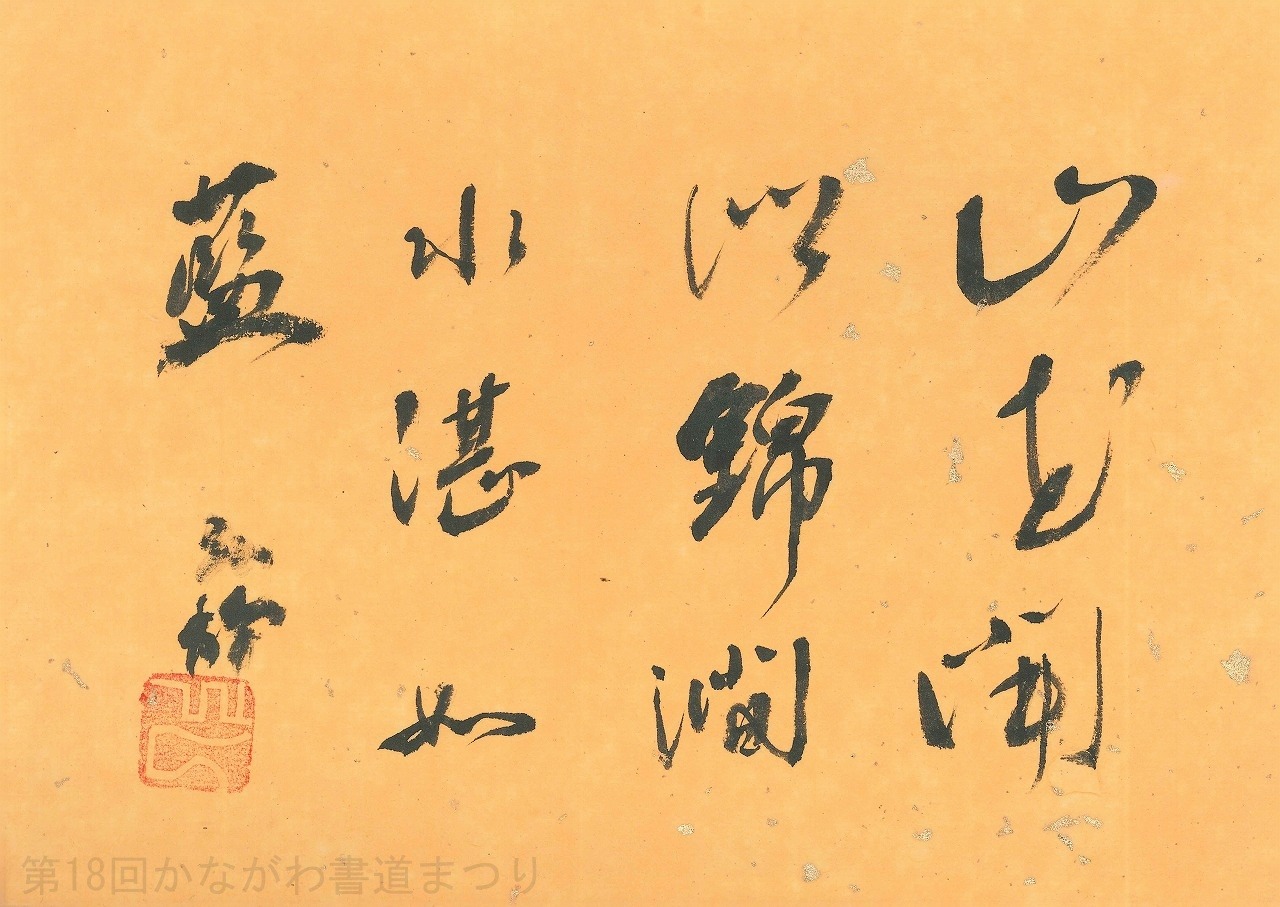 山花開
似錦澗
水湛如
藍
第18回かながわ書道まつり